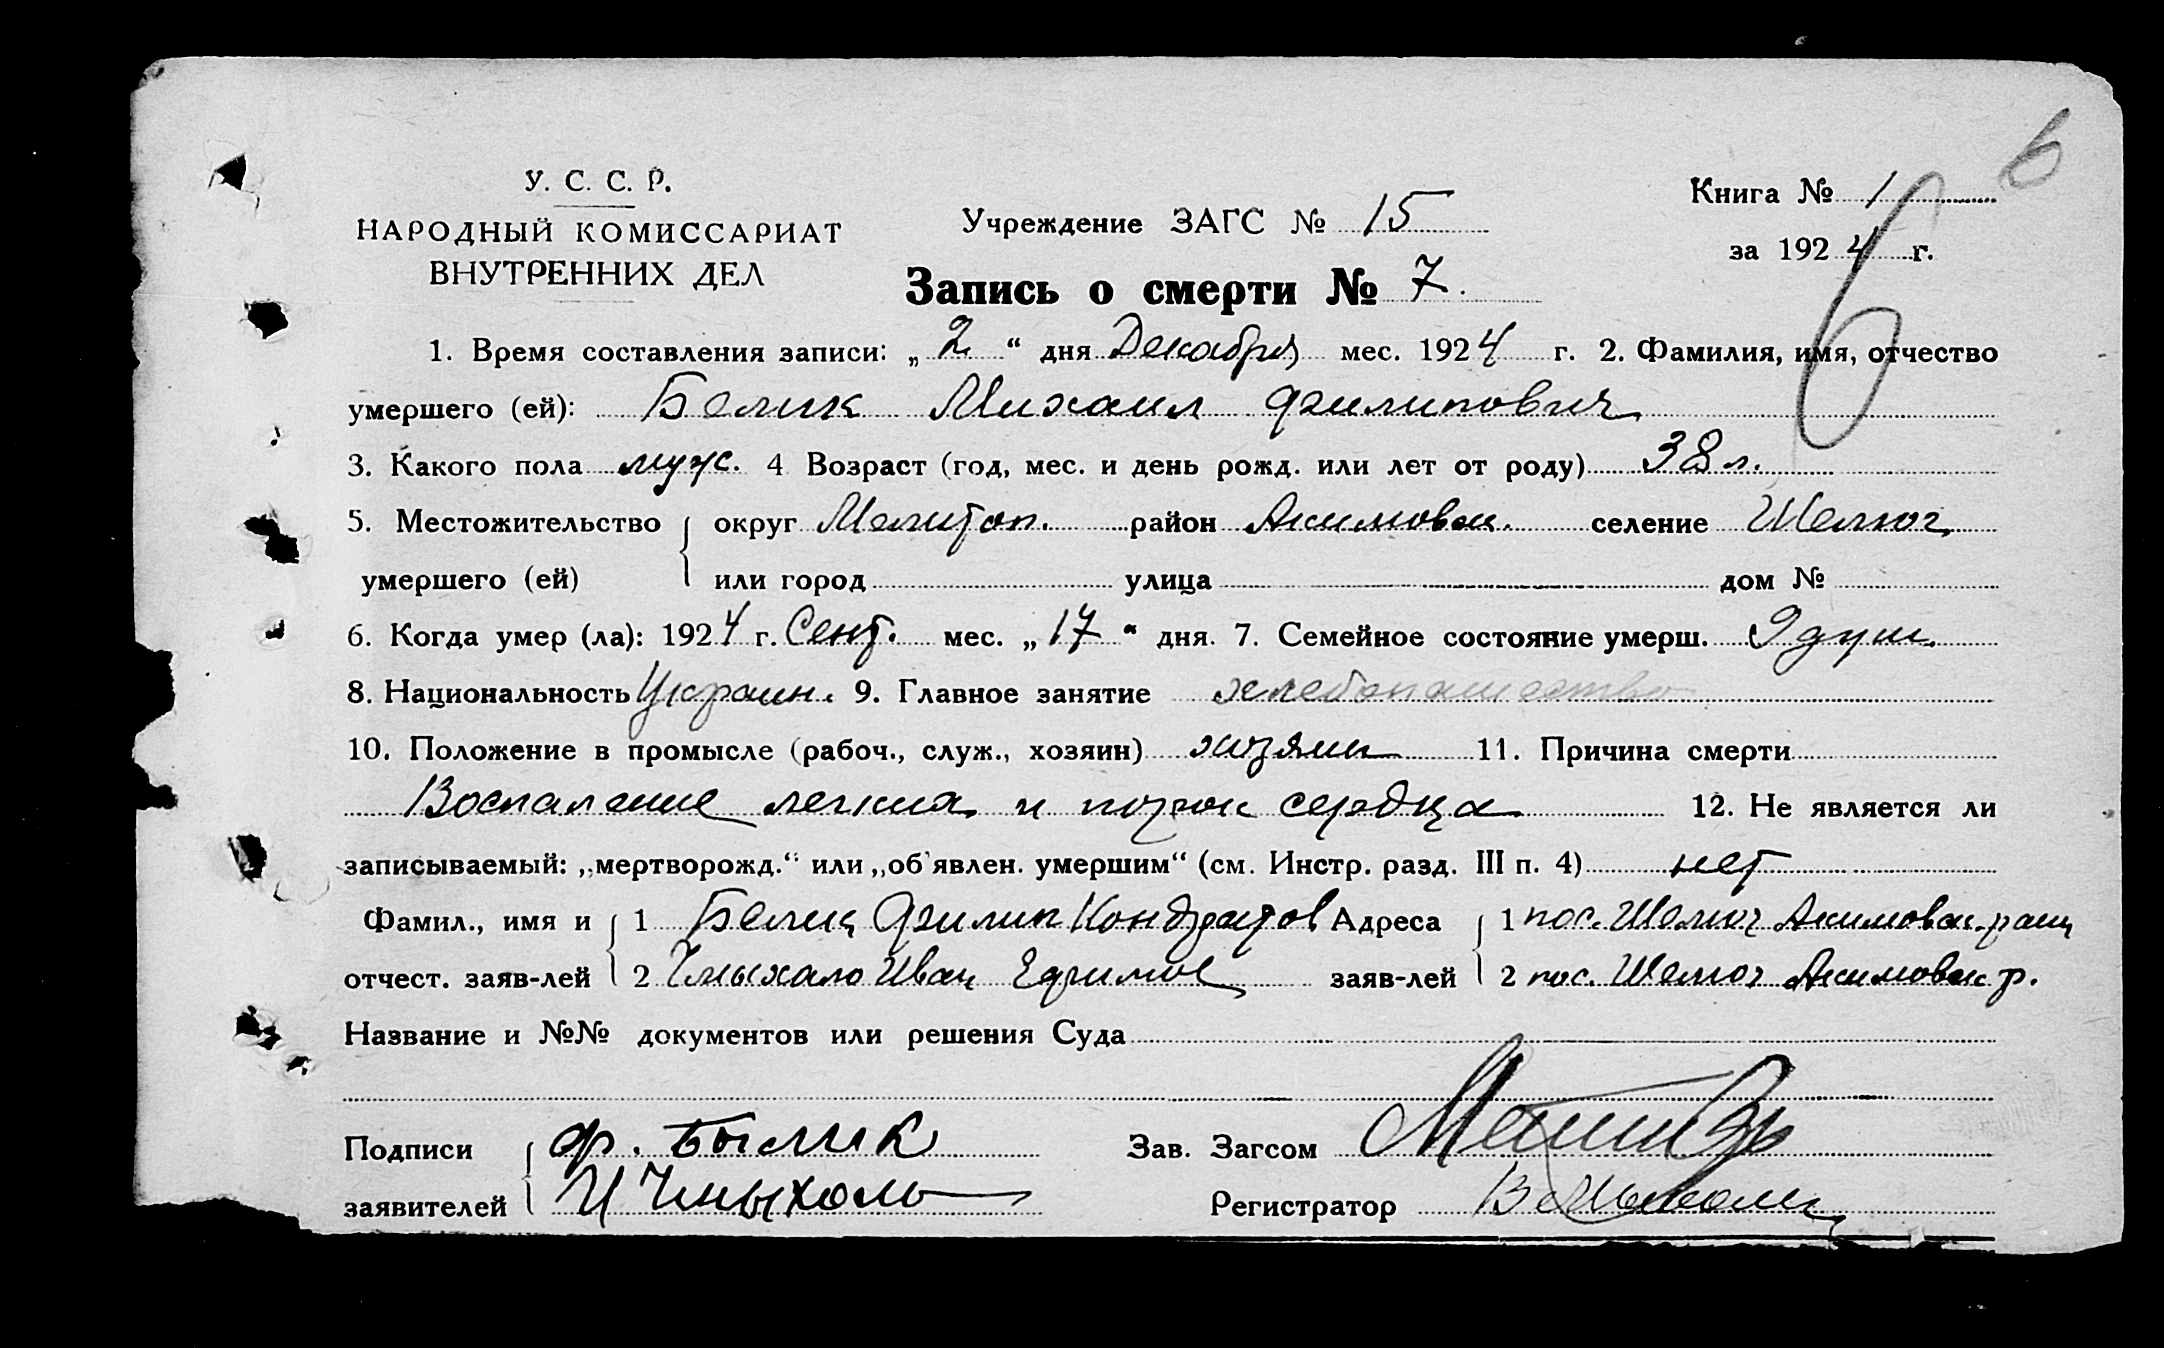 6
У. С. С. Р.
НАРОДНЫЙ КОМИССАРИАТ
ВНУТРЕННИХ ДЕЛ
Учреждение ЗАГС № 15
Книга № 1
за 1924 г.
6
Запись о смерти № 7.
1. Время составления записи: „2“ дня Декабря мес. 1924 г. 2. Фамилия, имя, отчество
умершего (ей): Белик Михаил Филипович
3. Какого пола муж. 4 Возраст (год, мес. и день рожд. или лет от роду) 38 л.
5. Местожительство округ Мелитоп. район Акимовск. селение Шелюг
умершего (ей) или город улица дом №
6. Когда умер (ла): 1924 г. Сент. мес. „17“ дня. 7. Семейное состояние умерш. 9 душ.
8. Национальность Украин. 9. Главное занятие хлебопашество
10. Положение в промысле (рабоч., служ., хозяин) хозяин 11. Причина смерти
Воспаление легких и порок сердца 12. Не является ли
записываемый: „мертворожд.“ или „об'явлен. умершим“ (см. Инстр. разд. III п. 4) нет
Фамил., имя и 1 Белик Филип Кондратов Адреса 1 пос. Шелюг Акимовск. район
отчест. заяв-лей 2 Чмыхало Иван Ефимов заяв-лей 2 пос. Шелюг Акимовск р.
Название и №№ документов или решения Суда
Подписи Ф. Былик Зав. Загсом
заявителей И Чмыхало Регистратор